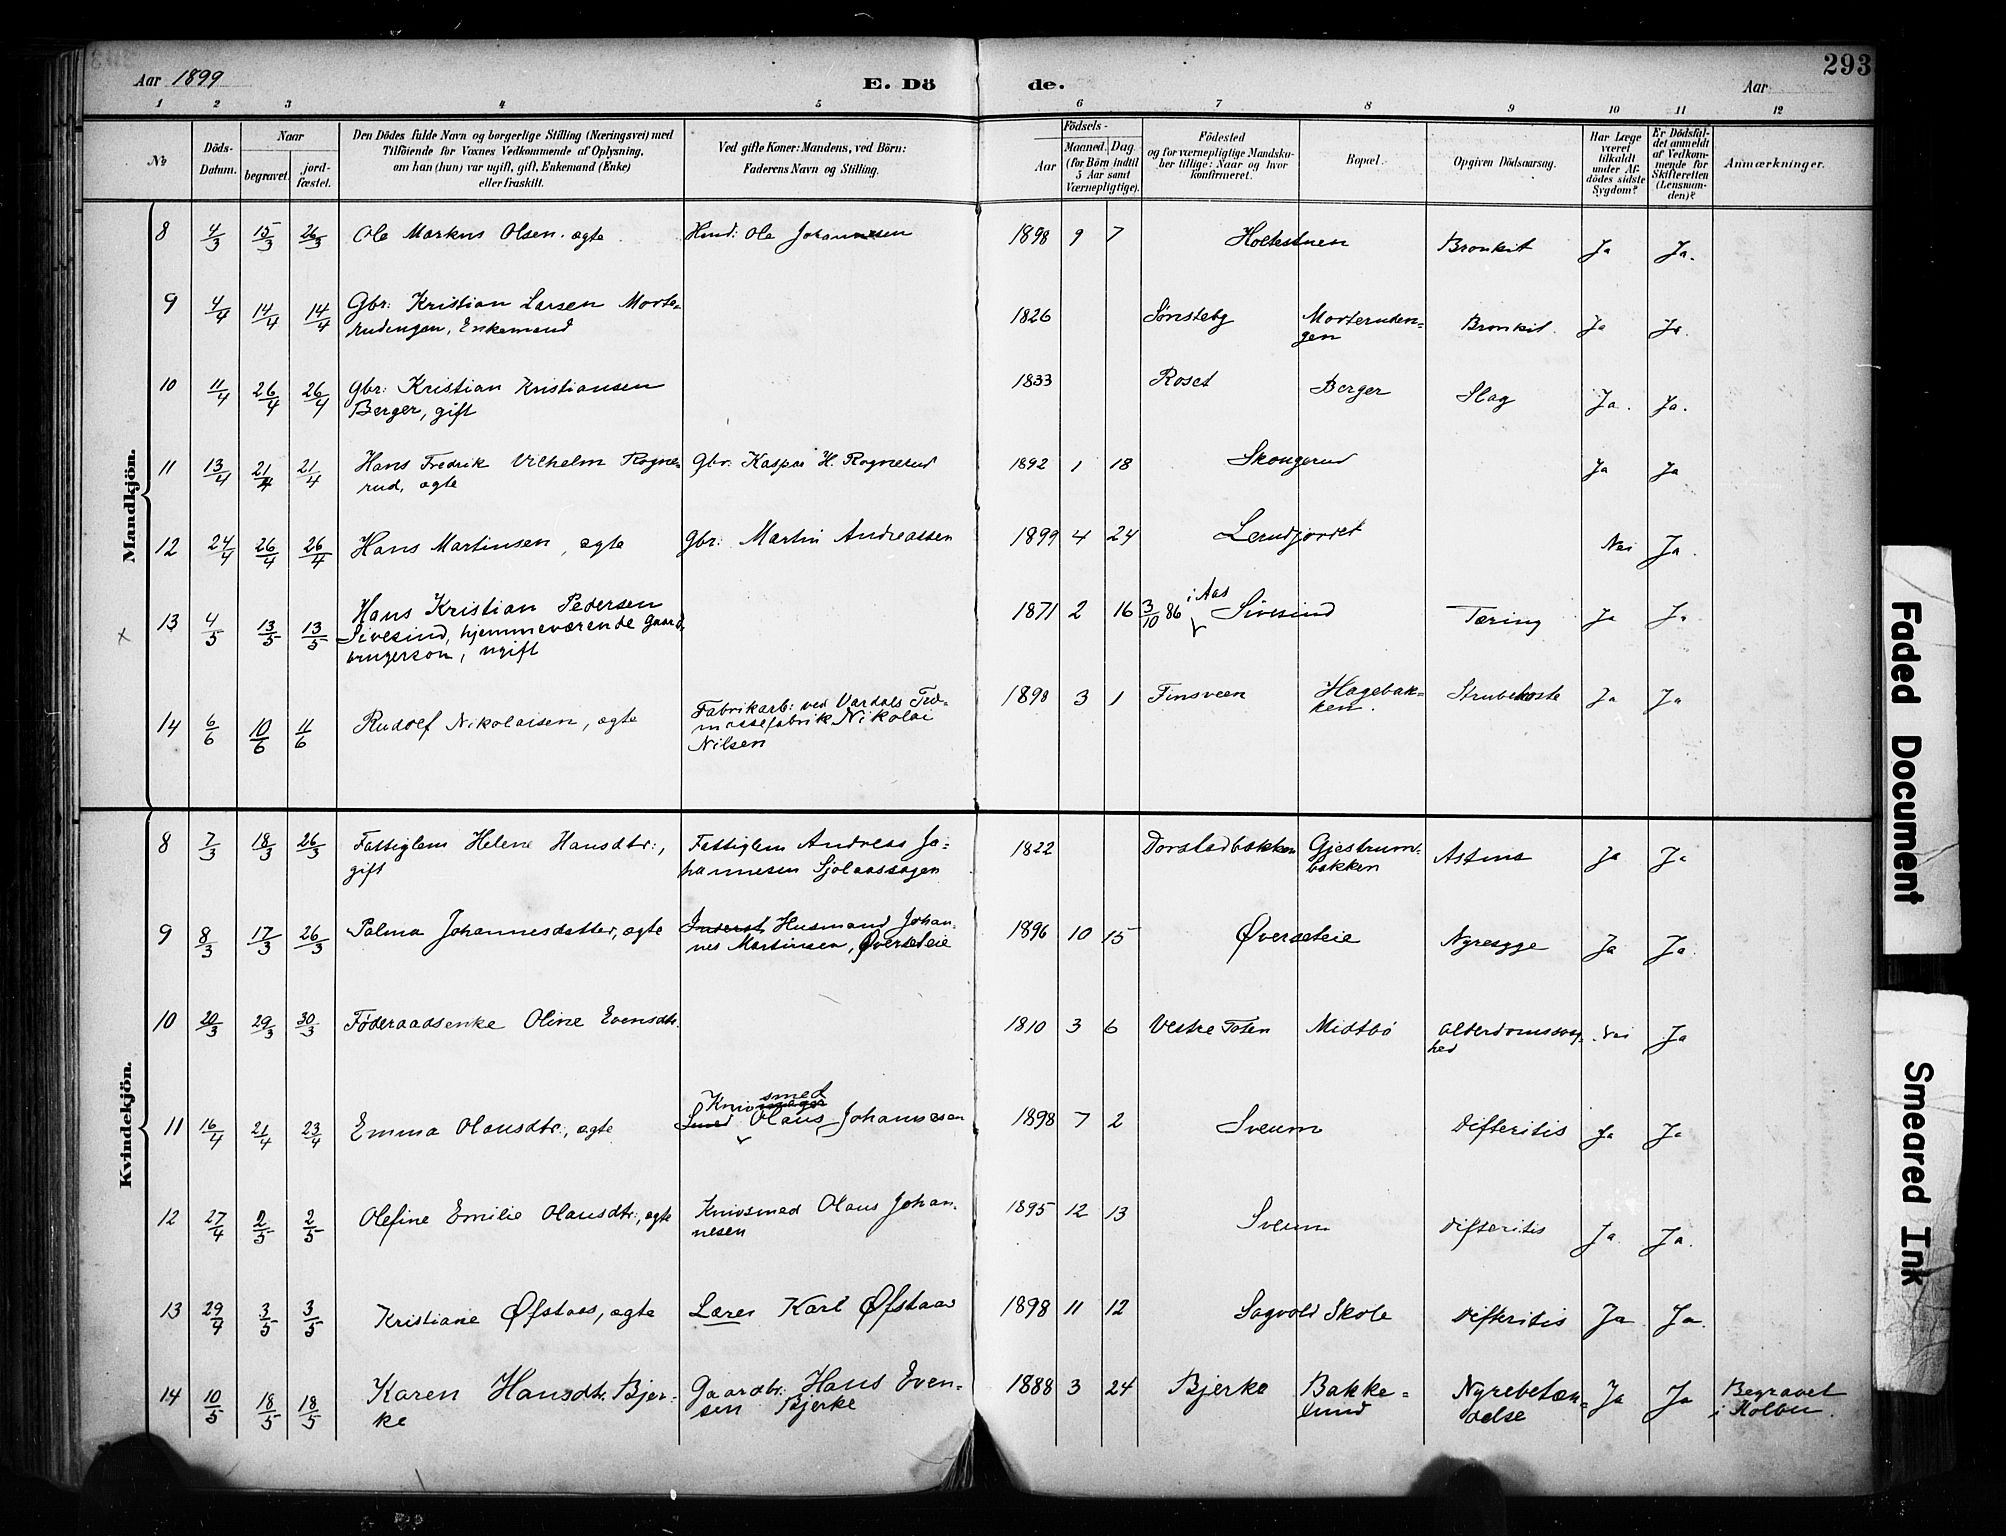 293
Aar 1899
E. Dö
de.
Aar
1 2 3 4 5 6 7 8 9 10 11 12
No
Döds-
Datum.
Naar
begravet.
jord-
fæstet.
Den Dödes fulde Navn og borgerlige Stilling (Næringsvei) med
Tilföiende for Voxnes Vedkommende af Oplysning,
om han (hun) var ugift, gift, Enkemand (Enke)
eller fraskilt.
Ved gifte Koner: Mandens, ved Börn:
Faderens Navn og Stilling.
Födsels-
Aar
Maaned. Dag.
(for Börn indtil
5 Aar samt
Værnepligtige).
Födested
og for værnepligtige Mandska-
ber tillige: Naar og hvor
konfirmeret.
Bopæl.
Opgiven Dödsaarsag.
Har Læge
været
tilkaldt
under Af-
dödes sidste
Sygdom?
Er Dödsfal-
det anmeldt
af Vedkom-
mende for
Skifteretten
(Lensman-
den)?
Anmærkninger.
Mandkjön.
8 4/3 15/3 26/3 Ole Markus Olsen. ægte Husd: Ole Johannesen 1898 9 7 Holtestuen Bronkit Ja Ja.
9 4/4 14/4 14/4 Gbr: Kristian Larsen Morte-
rudengen, Enkemand 1826 Sønsteby Morteruden-
gen Bronkit. Ja Ja.
10 11/4 26/4 26/4 Gbr: Kristian Kristiansen
Berger, gift 1833 Roset Berger Slag Ja. Ja.
11 13/4 21/4 21/4 Hans Fredrik Vilhelm Rogne-
rud, ægte Gbr: Kaspar H. Rognerud 1892 1 18 Skongerud Ja Ja
12 24/4 26/4 26/4 Hans Martinsen, ægte Gbr: Martin Andreassen 1899 4 24 Lerudjordet Nei Ja.
x 13 4/5 13/5 13/5 Hans Kristian Pedersen
Sivesind, hjemmeværende Gaard-
brugersøn, ugift 1871 2 16 3/10 86 i Aas Sivesind Tæring Ja Ja
14 6/6 10/6 11/6 Rudolf Nikolaisen, ægte Fabrikarb: ved Vardals Træ-
massefabrik Nikolai
Nilsen 1898 3 1 Finsveen Hagebak-
ken. Strubehoste Ja Ja
Kvindekjön.
8 7/3 18/3 26/3 Fattiglem Helene Hansdtr:,
gift Fattiglem Andreas Jo-
hannesen Sjolaassagen 1822 Dorstadbakken Gjestrum-
bakken Astma Ja Ja
9 8/3 17/3 26/3 Palma Johannesdatter, ægte Inderst Husmand Johan-
nes Martinsen, Øverseteie 1896 10 15 Øverseteie Nyresyge Ja Ja.
10 20/3 29/3 30/3 Føderaadsenke Oline Evensdtr. 1810 3 6 Vestre Toten Midtbö Alderdomssvag-
hed Nei Ja
11 16/4 21/4 23/4 Emma Olausdtr:, ægte Kniv smed
Smed Olaus Johannesen 1898 7 2 Sveum Difteritis Ja Ja
12 27/4 2/5 2/5 Olefine Emilie Olausdtr:, ægte Knivsmed Olaus Johan-
nesen 1895 12 13 Sveum Difteritis Ja Ja.
13 29/4 3/5 3/5 Kristiane Øfstaas, ægte Lærer Karl Øfstaas 1898 11 12 Sagvold Skole Difteritis Ja Ja.
14 10/5 18/5 18/5 Karen Hansdtr. Bjer-
ke Gaardbr: Hans Even-
sen Bjerke 1888 3 24 Bjerke Bakke-
lund Nyrebetæn-
delse Ja Ja Begravet
i Kolbu.
Faded Document
Smeared Ink